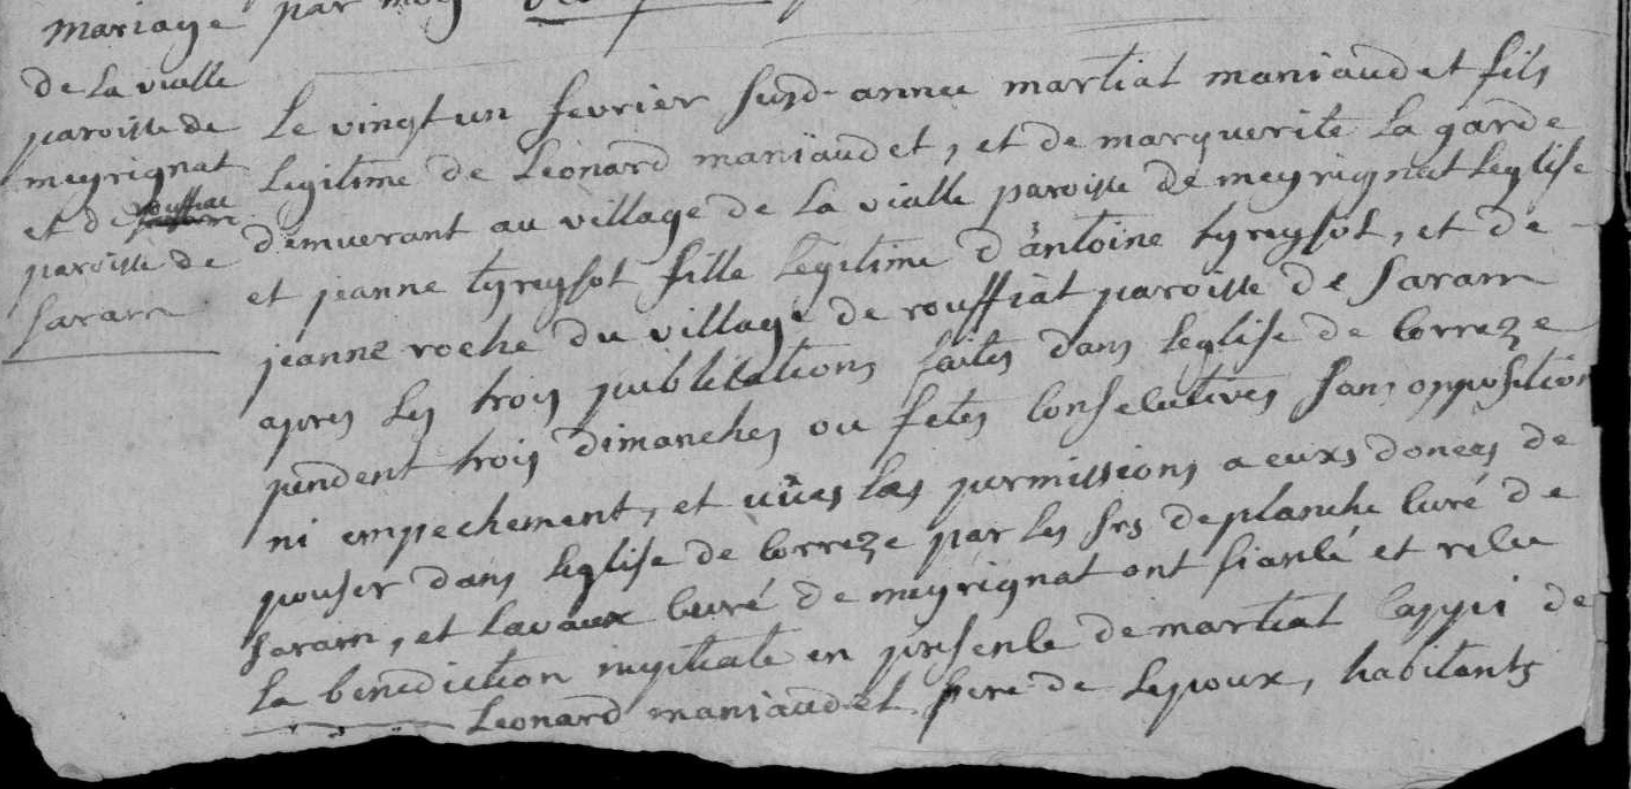 mariage
de la vialle
paroisse de
meyrignat
et de rouffiat
paroisse de
saran
par moy
Le vingt un fevrier susd. annee martial maniaudet fils
legitime de Léonard maniaudet, et de marguerite la garde
demuerant au village de la vialle paroisse de meyrignat leglise
et jeanne tyreysot fille legitime d'antoine tyreysot, et de
jeanne roche du village de rouffiat paroisse de saran
apres les trois publications faites dans leglise de correze
pendent trois dimanches ou fetes consecutives sans opposition
ni empechement, et vües les permissions a euxs donees de
pouser dans leglise de correze par les srs deplanche curé de
saran, et lavaux curé de meyrignat ont fiancé et relu
la benediction nuptiale en presence de martial cappi de
Leonard maniaudet pere de lepoux, habitants